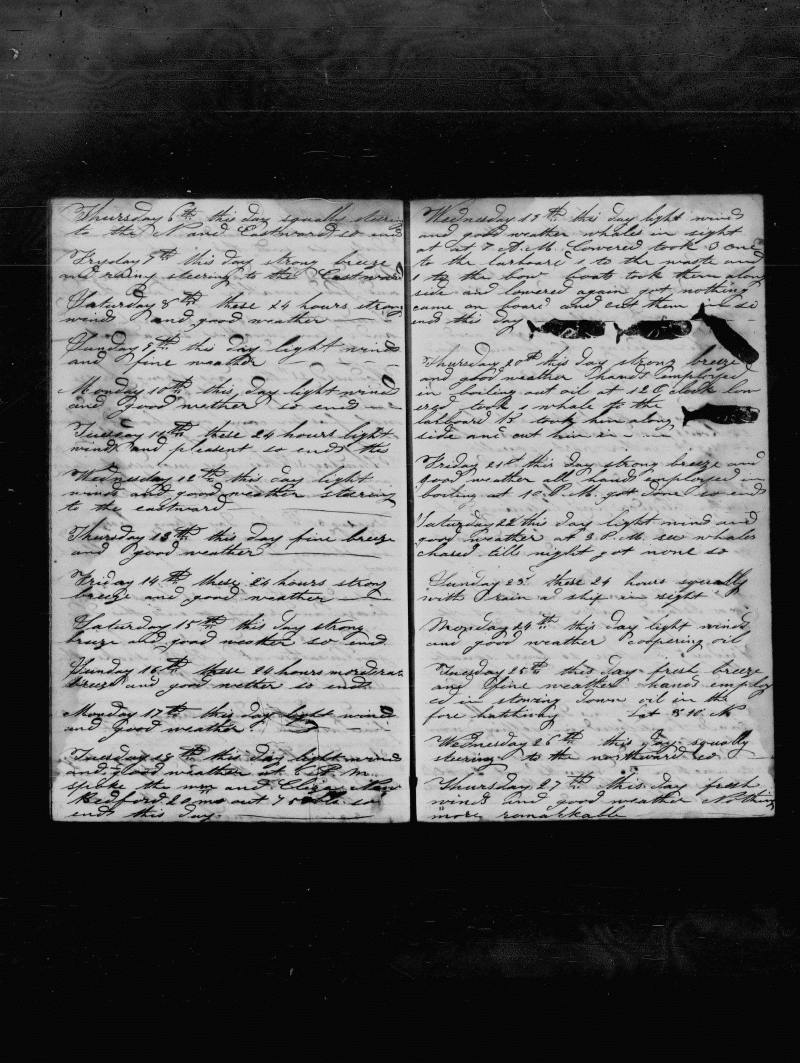 Thursday 6th this day squally steering
to the N and Eastward so ends
Fryday 7th this day strong breeze
and rainy steering to the Eastward
Saturday 8th these 24 hours strong
winds and good weather
Sunday 9th this day light winds
and fine weather
Monday 10th this day light winds
and good wether so ends
Tuesday 11th these 24 hours light
winds and plesent so ends this
Wednesday 12th this day light
winds and good weather steering
to the eastward
Thursday 13th this day fine breeze
and good weather
Friday 14th these 24 hours strong
breeze and good weather
Saturday 15th this day strong
breeze and good weather so end
Sunday 16th these 24 hours moderate
breeze and good wether so ends
Monday 17th this day light winds
and good weather
Tuesday 18th this day light winds
and good weather at 6 P.M.
spoke the Wm and Eliza New
Bedford 20 ms out so
ends this day
Wednesday 19th this day light winds
and good weather whales in sight
at 7 A.M. lowered took 3 one
to the larboard 1 to the waste and
1 to the bow boats took them along
side and lowered again got nothing
came on board and cut them in so
end this day
Thursday 20th this day strong breeze
and good weather hands employed
in boiling out oil at 12 O clock low
erd took a whale to the
labboard B took him along
side and cut him in
Friday 21st this day strong breeze and
good weather all hands employed in
boiling at 10 P.M. got done so ends
Saturday 22 this day light wind and
good weather at 3 P.M. see whales
chased till night got none so
Sunday 23d these 24 hours squally
with rain a ship in sight
Monday 24th this day light winds
and good weather coopering oil
Tuesday 25th this day fresh breeze
and fine weather hands employ
ed in stowing down oil in the
fore hatchway Lat 3 10 N
Wednesday 26th this day squally
steering to the northward so
Thursday 27th this day fresh
winds and good weather Nothing
more remarkable